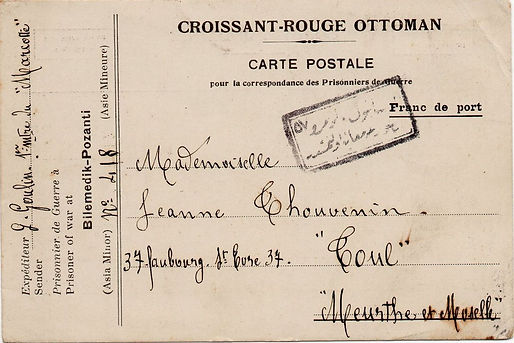 CROISSANT-ROUGE OTTOMAN
CARTE POSTALE
pour la correspondance des Prisonniers de Guerre
Franc de port
Mademoiselle
Jeanne Thouvenin.
37 faubourg St Evre 37.
"Toul"
"Meurthe et Moselle"
Expéditeur J. Goulin 1er mtre du "Mariotte"
Sender
Prisonnier de Guerre à
Prisoner of war at
Bilemedik-Pozanti
(Asie Mineure)
(Asia Minor) No 418